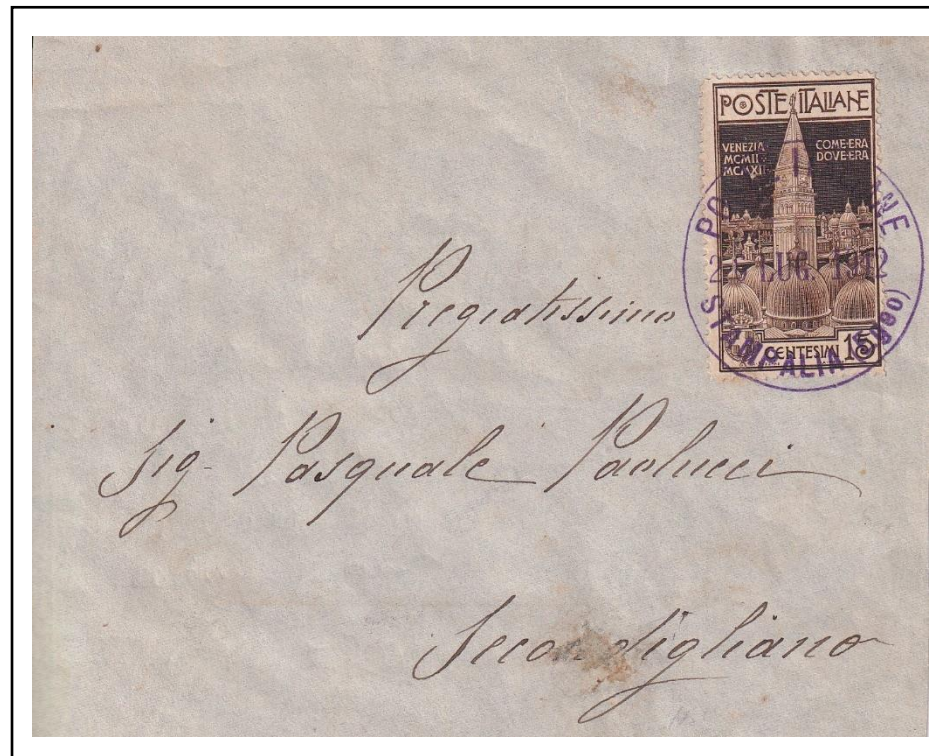 POSTE ITALIANE
VENEZIA
MCMII
MCMXII
COM'ERA
DOV'ERA
CENTESIMI 15
LUG. 1912
STAMPALIA (Egeo)
Pregiatissimo
Sig. Pasquale Paolucci
Secondigliano